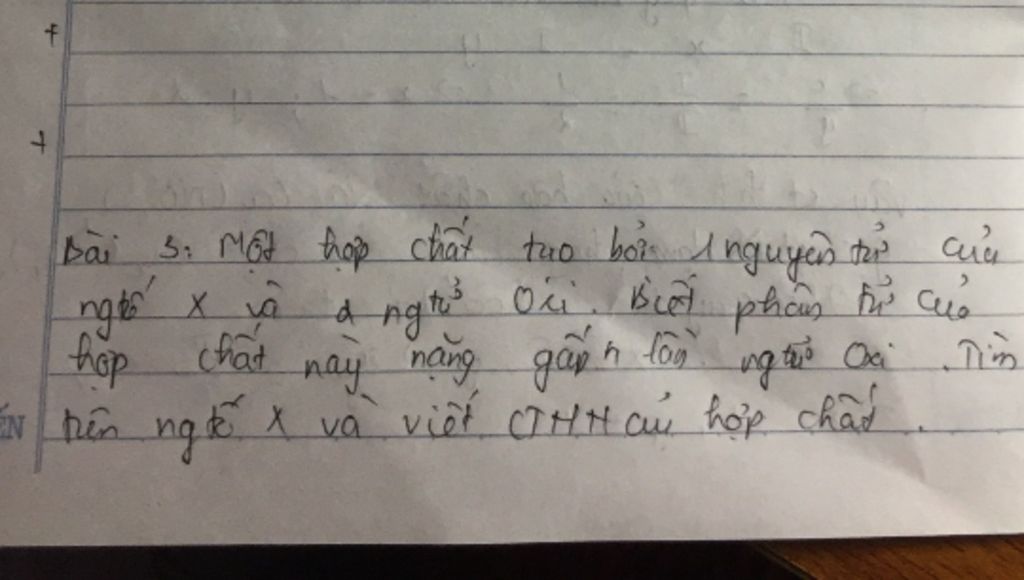 Bài 3: Một hợp chất tạo bởi 1 nguyên tử của
ngtố X và 2 ngtử Oxi. Biết phân tử của
hợp chất này nặng gấp n lần ngtử Oxi. Tìm
tên ngtố X và viết CTHH củ hợp chất.